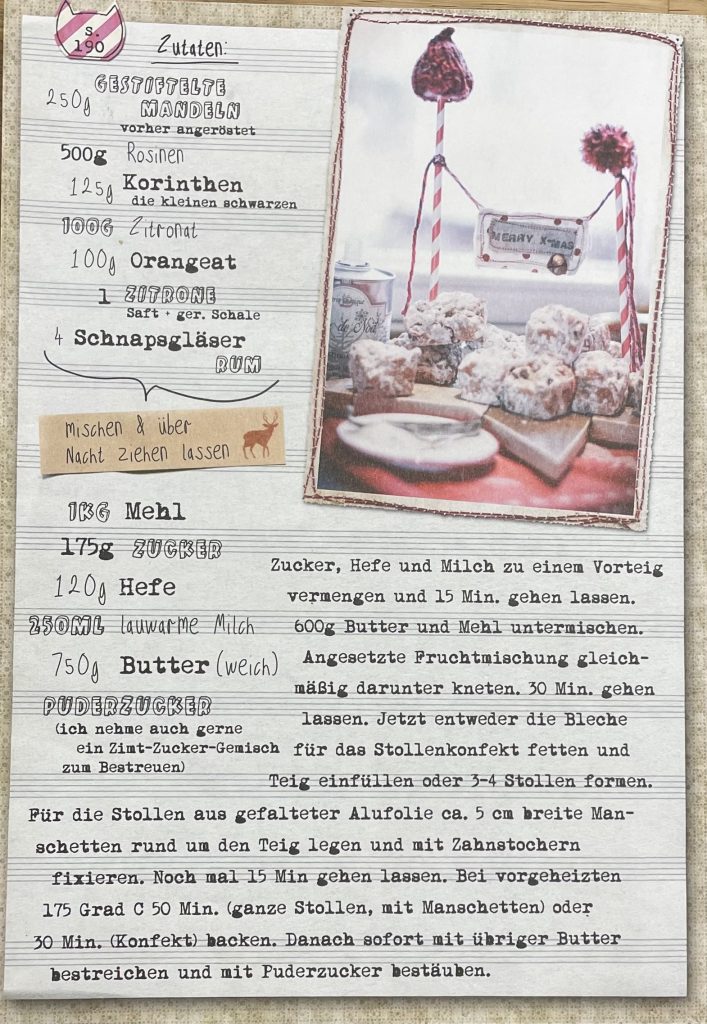 S.
190
Zutaten:
250g GESTIFTELTE
MANDELN
vorher angeröstet
500g Rosinen
125g Korinthen
die kleinen schwarzen
100G Zitronat
100g Orangeat
1 ZITRONE
Saft + ger. Schale
4 Schnapsgläser
RUM
mischen & über
Nacht ziehen lassen
MERRY X-MAS
de Noël
1KG Mehl
175g ZUCKER
120g Hefe
250ML lauwarme Milch
750g Butter (weich)
PUDERZUCKER
(ich nehme auch gerne
ein Zimt-Zucker-Gemisch
zum Bestreuen)
Zucker, Hefe und Milch zu einem Vorteig
vermengen und 15 Min. gehen lassen.
600g Butter und Mehl untermischen.
Angesetzte Fruchtmischung gleich-
mäßig darunter kneten. 30 Min. gehen
lassen. Jetzt entweder die Bleche
für das Stollenkonfekt fetten und
Teig einfüllen oder 3-4 Stollen formen.
Für die Stollen aus gefalteter Alufolie ca. 5 cm breite Man-
schetten rund um den Teig legen und mit Zahnstochern
fixieren. Noch mal 15 Min gehen lassen. Bei vorgeheizten
175 Grad C 50 Min. (ganze Stollen, mit Manschetten) oder
30 Min. (Konfekt) backen. Danach sofort mit übriger Butter
bestreichen und mit Puderzucker bestäuben.